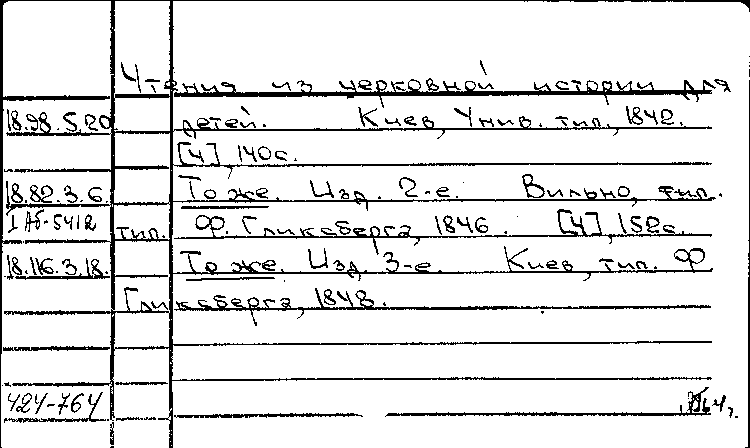 Чтения из церковной истории для
18.98.5.20 детей. Киев, Унив. тип., 1842.
[4], 140с.
18.82.3.6. То же. Изд. 2-е. Вильно, тип.
I Аб-5412 тип. Ф. Гликсберга, 1846. [4], 152с.
18.116.3.18. То же. Изд. 3-е. Киев, тип. Ф
Гликсберга, 1848.
424-764